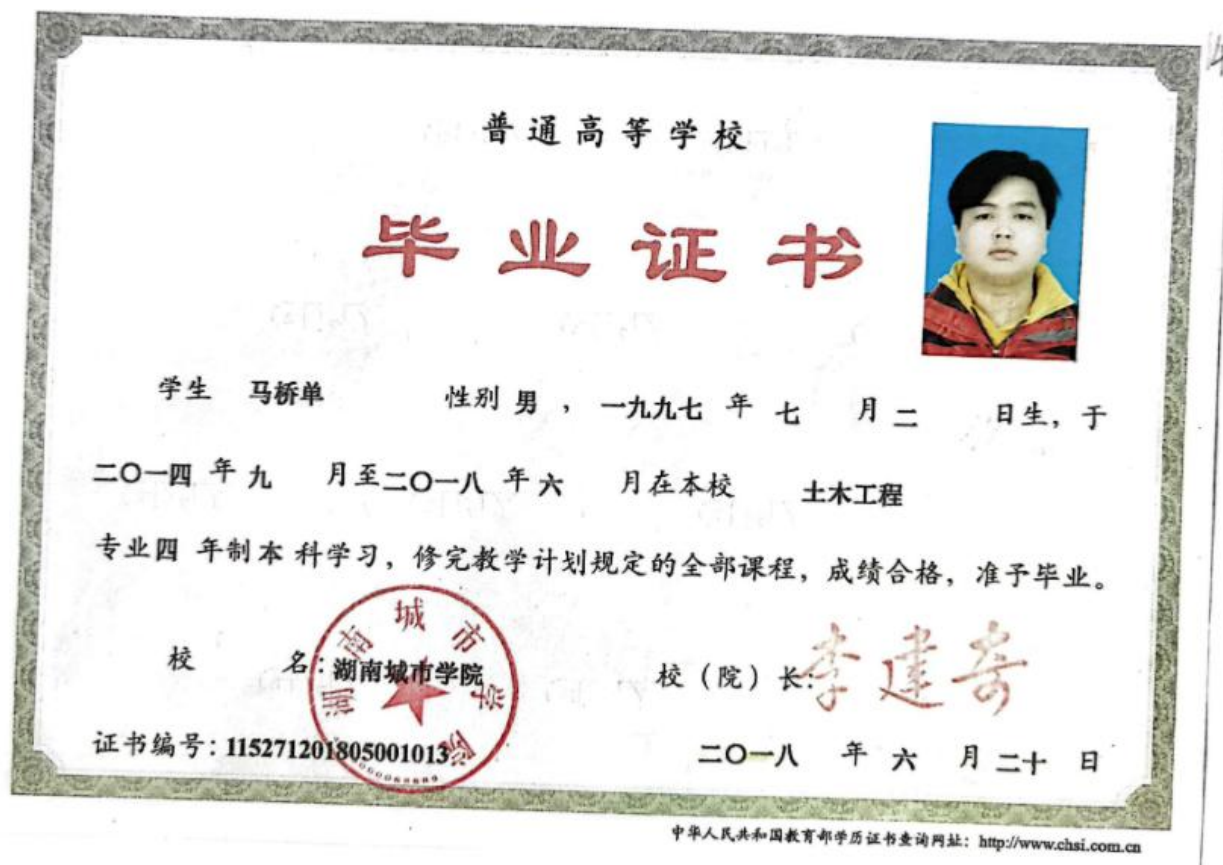 普通高等学校
毕业证书
学生 马桥单 性别 男 ， 一九九七 年 七 月 二 日生，于
二〇一四 年 九 月至 二〇一八 年 六 月在本校 土木工程
专业 四 年制 本 科学习，修完教学计划规定的全部课程，成绩合格，准予毕业。
校 名：湖南城市学院
湖南城市学院
校（院）长：李建奇
证书编号：115271201805001013
二〇一八 年 六 月 二十 日
中华人民共和国教育部学历证书查询网址：http://www.chsi.com.cn